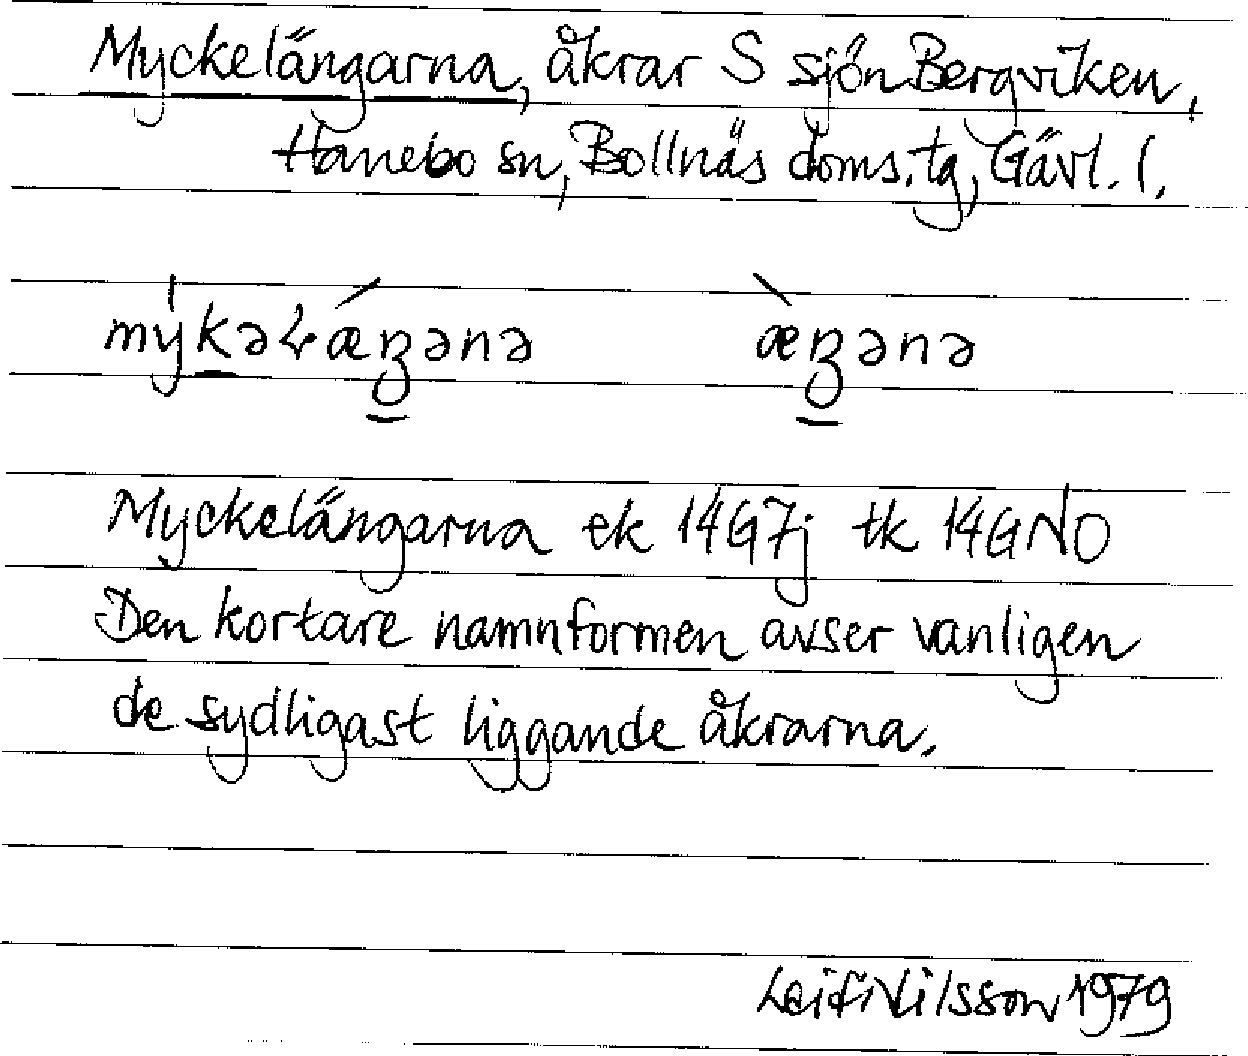 Myckelängarna, åkrar S sjön Bergviken,
Hanebo sn, Bollnäs doms.tg, Gävl. l.
Myckelängarna ek 14G7j tk 14GNO
Den kortare namnformen avser vanligen
de sydligast liggande åkrarna.
Leif Nilsson 1979